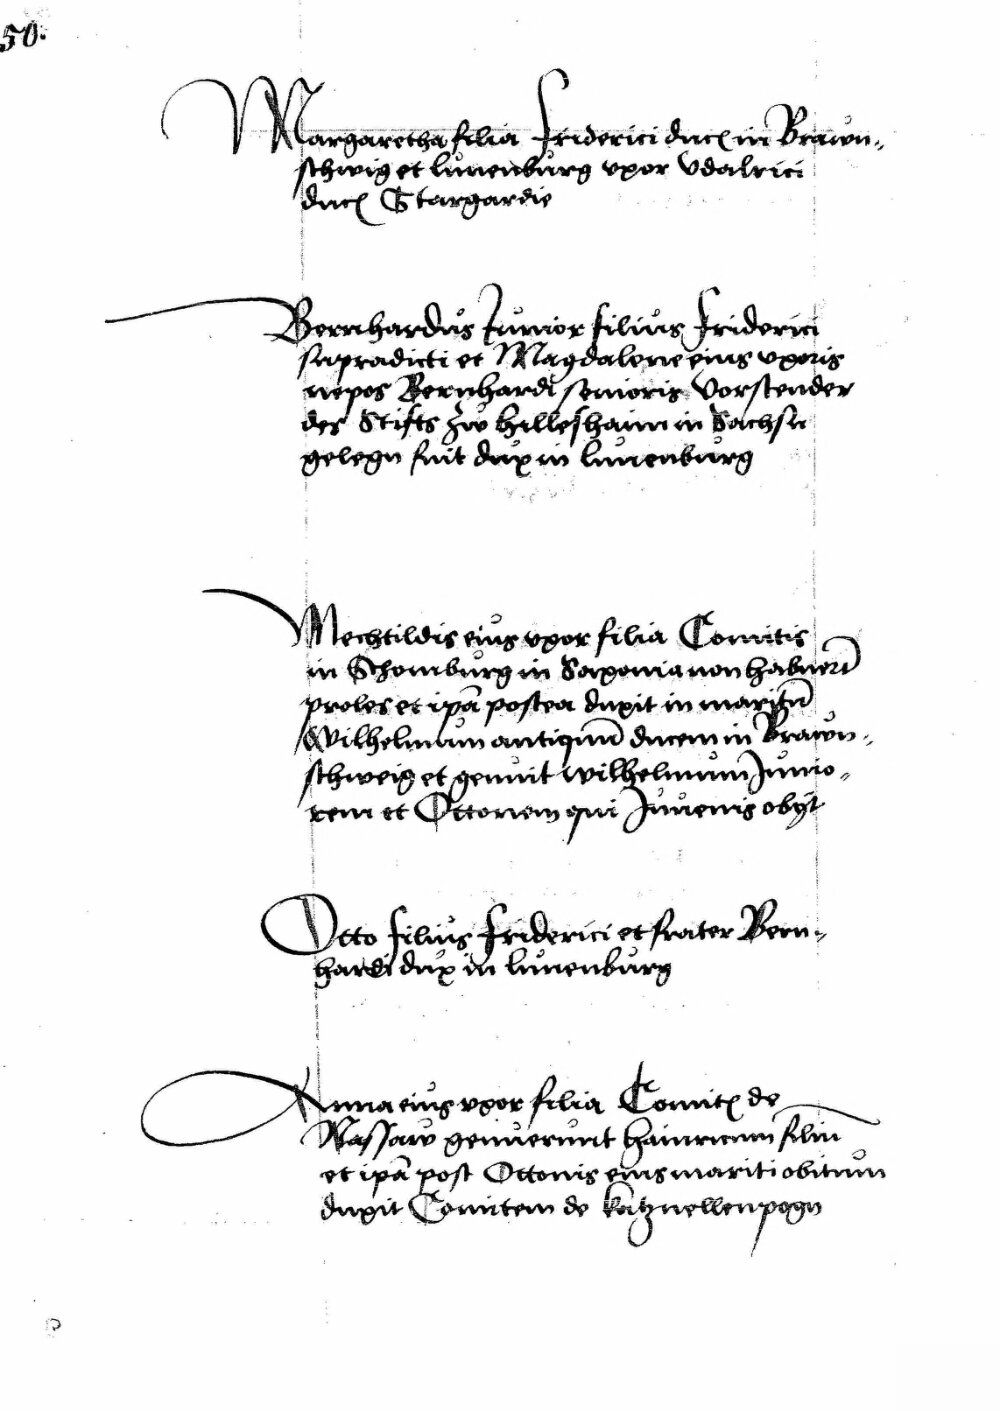 50.
Margaretha filia Friderici ducis in Brawn-
schwig et lunenburg vxor Vdalrici
ducis Stargardie
Bernhardus Junior filius Friderici
supradicti et Magdalene eius vxoris
nepos Bernhardi senioris Vorstender
des Stifts zw hilleshaim in Sachsn
gelegn fuit dux in lunenburg
Mechtildis eius vxor filia Comitis
in Schomburg in Saxonia non habuerūt
proles et ipā postea duxit in maritū
Wilhelmum antiquū ducem in Brawn-
schweig et genuit wilhelmum Junio-
rem et Ottonem qui Juvenis obijt
Otto filius Friderici et frater Bern-
hardi dux in lunenburg
Anna eius vxor filia Comitis de
Nassaw genuerunt hainricum filiū
et ipā post Ottonis eius mariti obitum
duxit Comitem de katznellenpogn